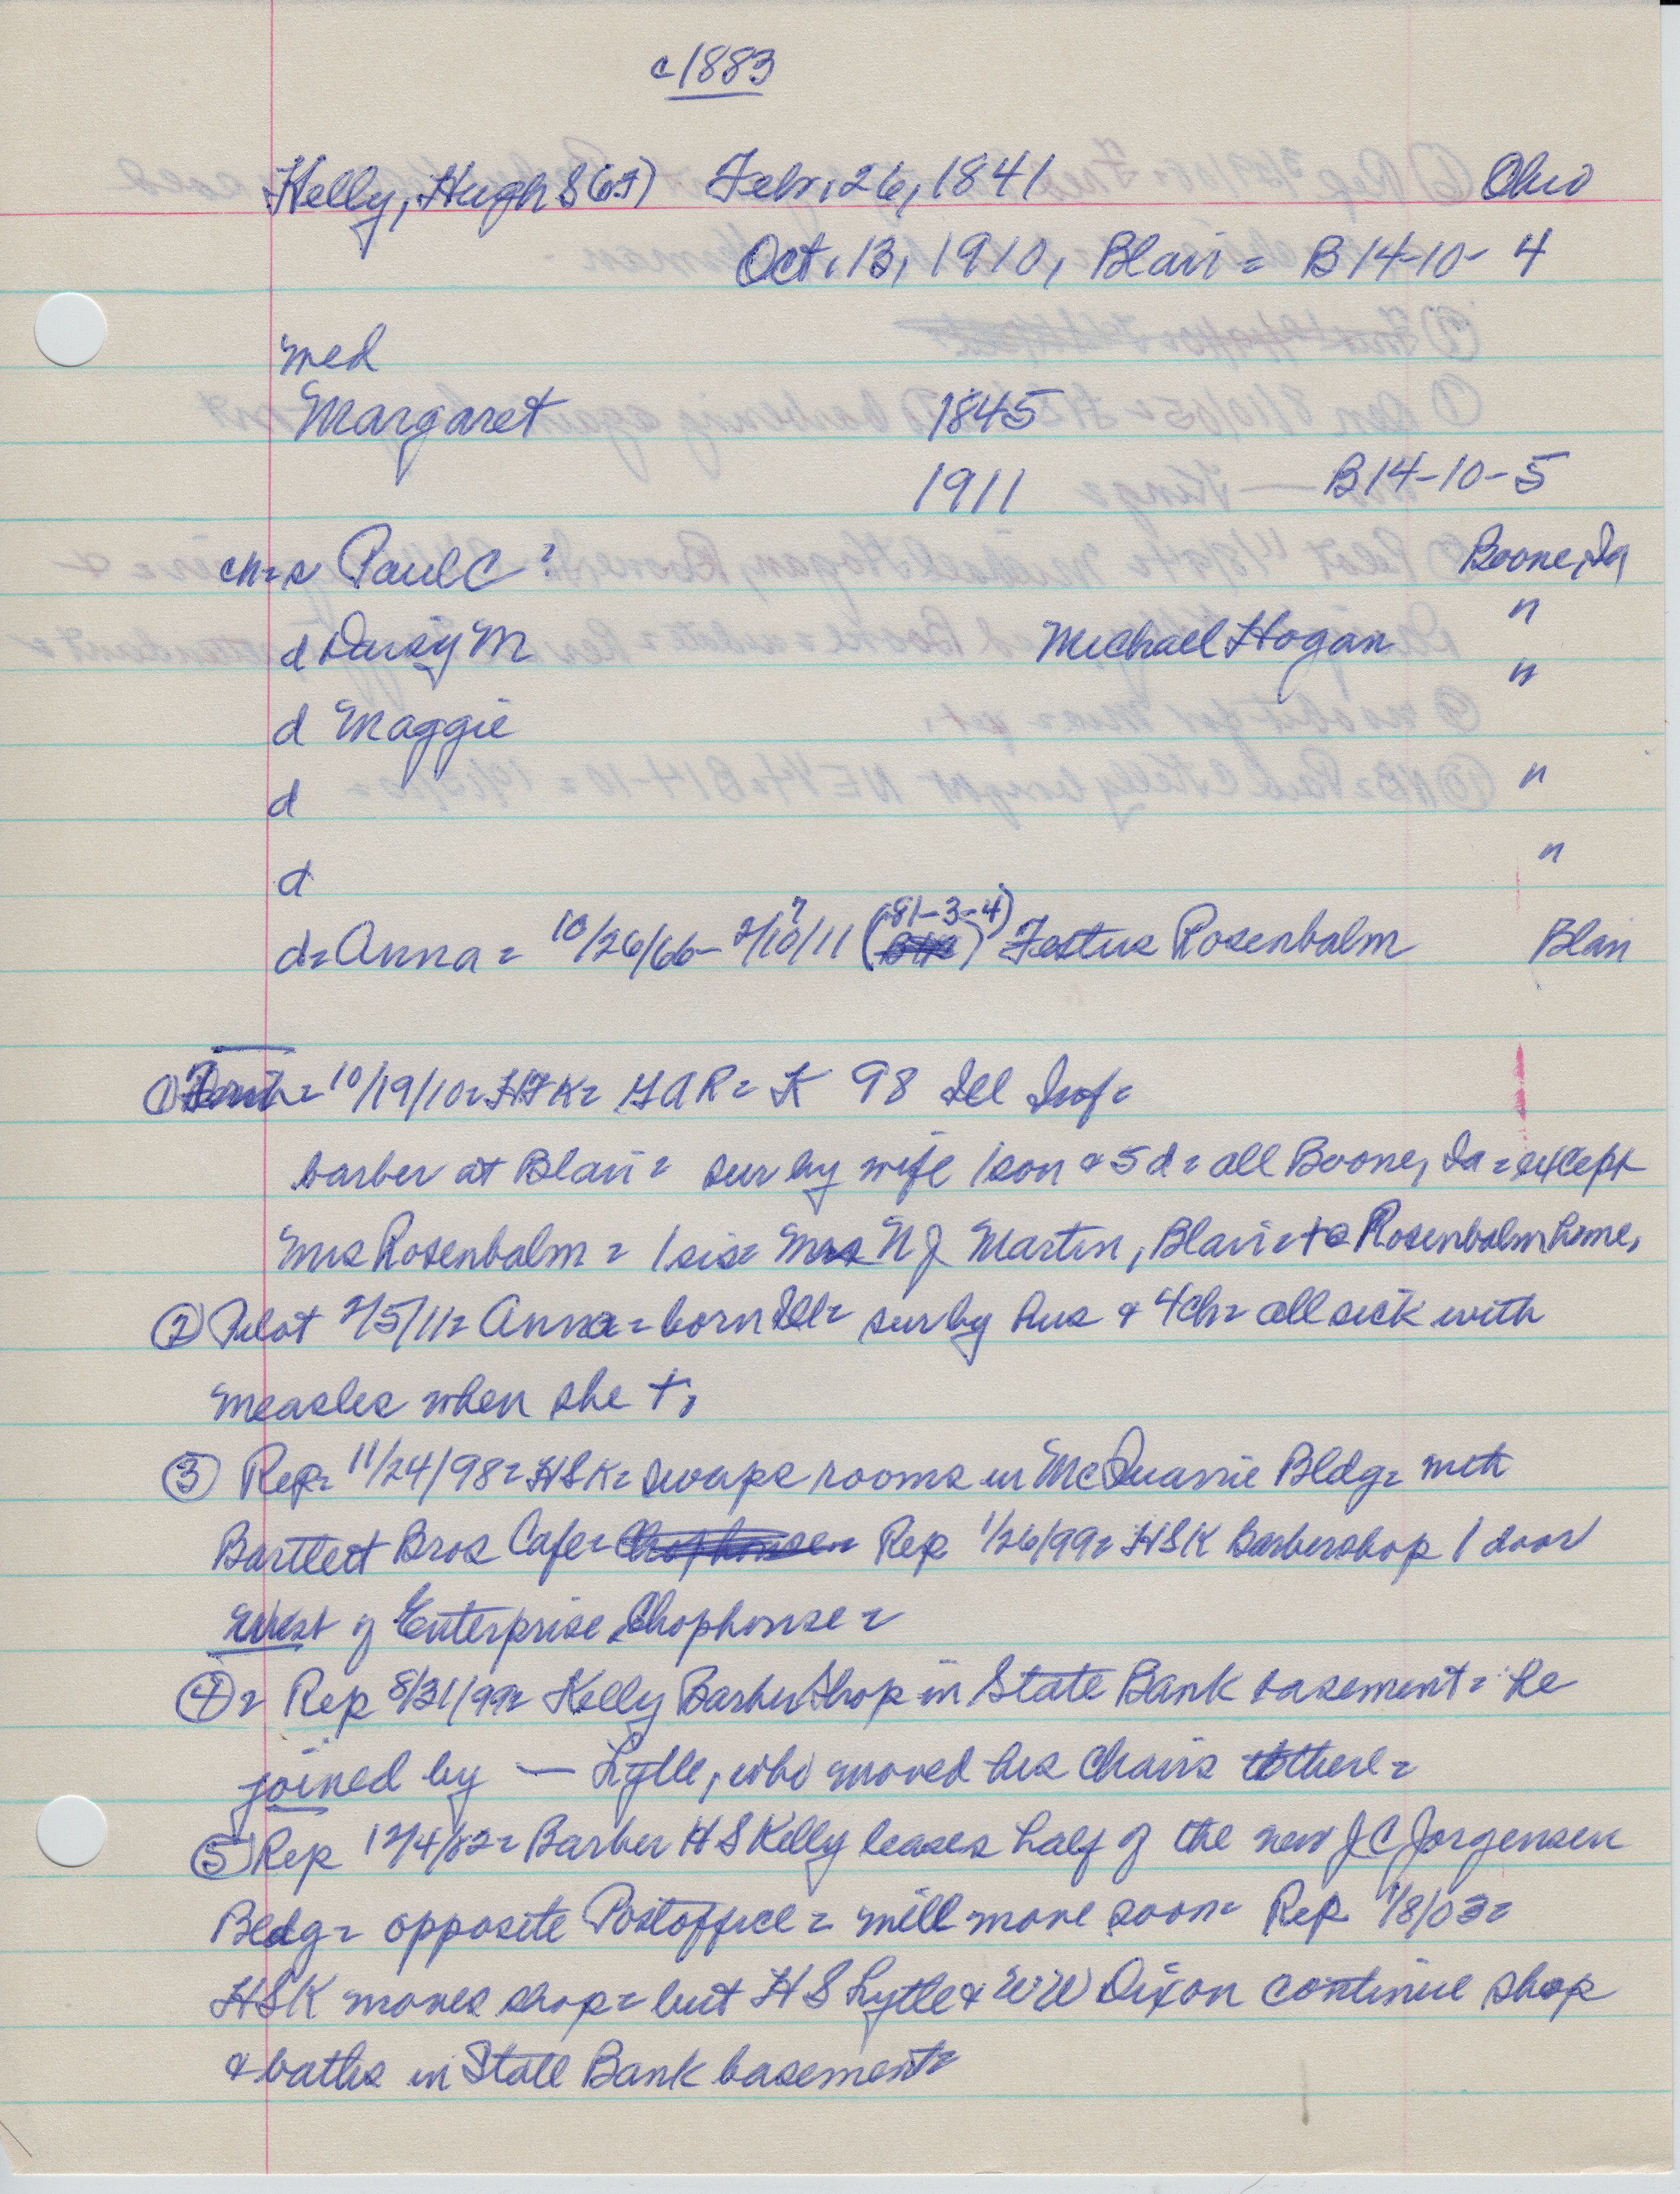 c1883
Kelly, Hugh S (69) Febr. 26, 1841 Ohio
Oct. 13, 1910, Blair = B14-10-4
med
Margaret 1845
1911 B14-10-5
ch = s Paul C ? Boone, Ia
d Daisy M Michael Hogan "
d Maggie "
d "
d "
d = Anna = 10/26/66 - 2/10/11 (81-3-4) Festus Rosenbalm Blair
① 10/19/10 = HSK = GAR = K 98 Ill Inf =
barber at Blair = sur by wife 1 son & 5 d = all Boone, Ia = except
Mrs Rosenbalm = 1 sis = Mrs N J Martin, Blair = + @ Rosenbalm home,
② Pilot 2/5/11 = Anna = born Ill = sur by hus & 4 ch = all sick with
measles when she +,
③ Rep = 11/24/98 = HSK = swaps rooms in McQuarrie Bldg = with
Bartlett Bros Cafe = Rep 1/26/99 = HSK Barbershop 1 door
west of Enterprise Chophouse =
④ = Rep 8/31/99 = Kelly Barber Shop in State Bank basement = he
joined by — Lytle, who moved his chairs there =
⑤ Rep 12/4/02 = Barber H S Kelly leases half of the new J C Jorgensen
Bldg = opposite Postoffice = will move soon = Rep 1/8/03 =
HSK moves shop = but H S Lytle & W W Dixon continue shop
& baths in State Bank basement =